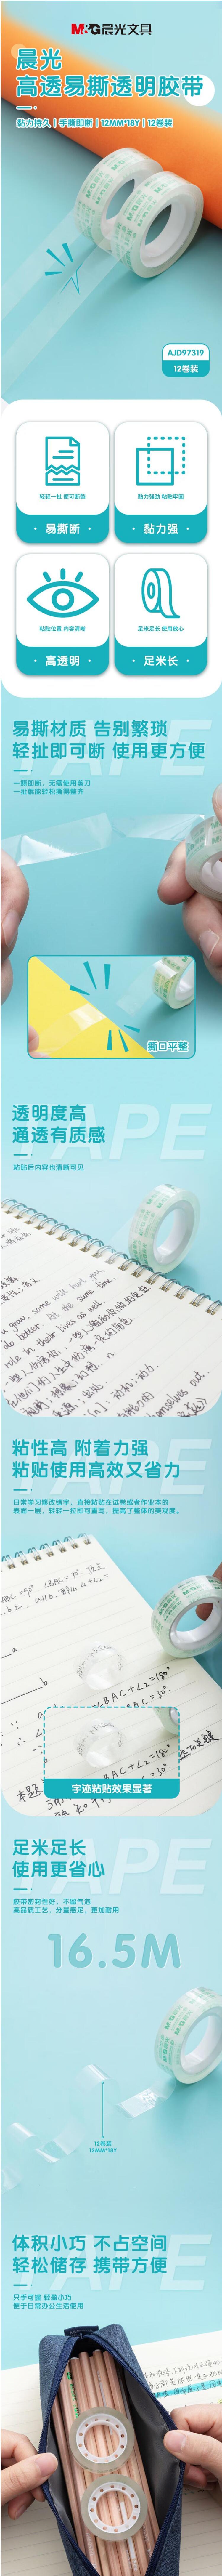 M&G晨光文具
晨光
高透易撕透明胶带
黏力持久 | 手撕即断 | 12MM*18Y | 12卷装
AJD97319
12卷装
轻轻一扯 便可断裂
· 易撕断 ·
黏力强劲 粘贴牢固
· 黏力强 ·
粘贴位置 内容清晰
· 高透明 ·
足米足长 使用放心
· 足米长 ·
TAPE
易撕材质 告别繁琐
轻扯即可断 使用更方便
一撕即断，无需使用剪刀
一扯就能轻松撕得整齐
撕口平整
TAPE
透明度高
通透有质感
粘贴后内容也清晰可见
TAPE
粘性高 附着力强
粘贴使用高效又省力
日常学习修改错字，直接粘贴在试卷或者作业本的
表面一层，轻轻一拉即可重写，提高了整体的美观度。
字迹粘贴效果显著
TAPE
足米足长
使用更省心
胶带密封性好，不留气泡
高品质工艺，分量感足，更加耐用
16.5M
12卷装
12MM*18Y
TAPE
体积小巧 不占空间
轻松储存 携带方便
只手可握 轻盈小巧
便于日常办公生活使用